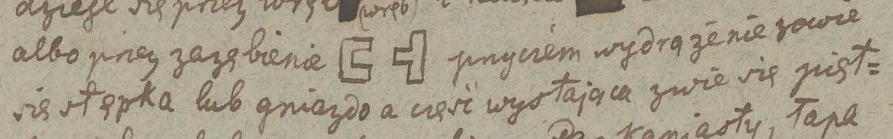 dzieje się przez wręb (wrąb)
albo przez zazębienie przyciem wydrążenie zowie
się stępka lub gniazdo a część wystająca zwie się pięt=
kaniasty, łapa